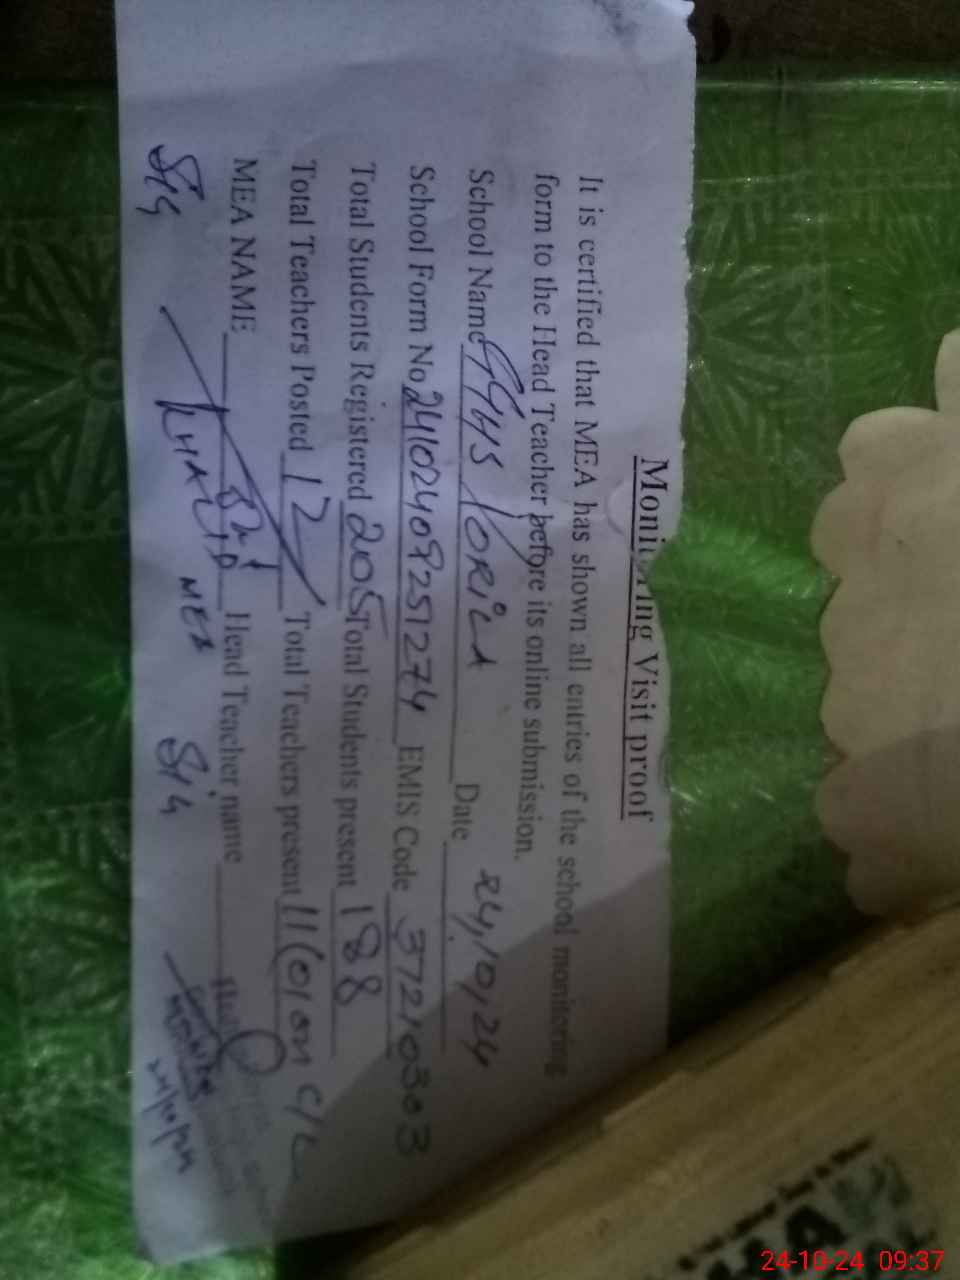 Monitoring Visit proof
It is certified that MEA has shown all entries of the school monitoring
form to the Head Teacher before its online submission.
School Name GGHS Date 24,10,24
School Form No 24102409251274 EMIS Code 37210303
Total Students Registered 205 Total Students present 188
Total Teachers Posted 12 Total Teachers present 11 (01 on C/L
MEA NAME Head Teacher name
Sig KHALID MEA Sig
24/10/24
24-10-24 09:37